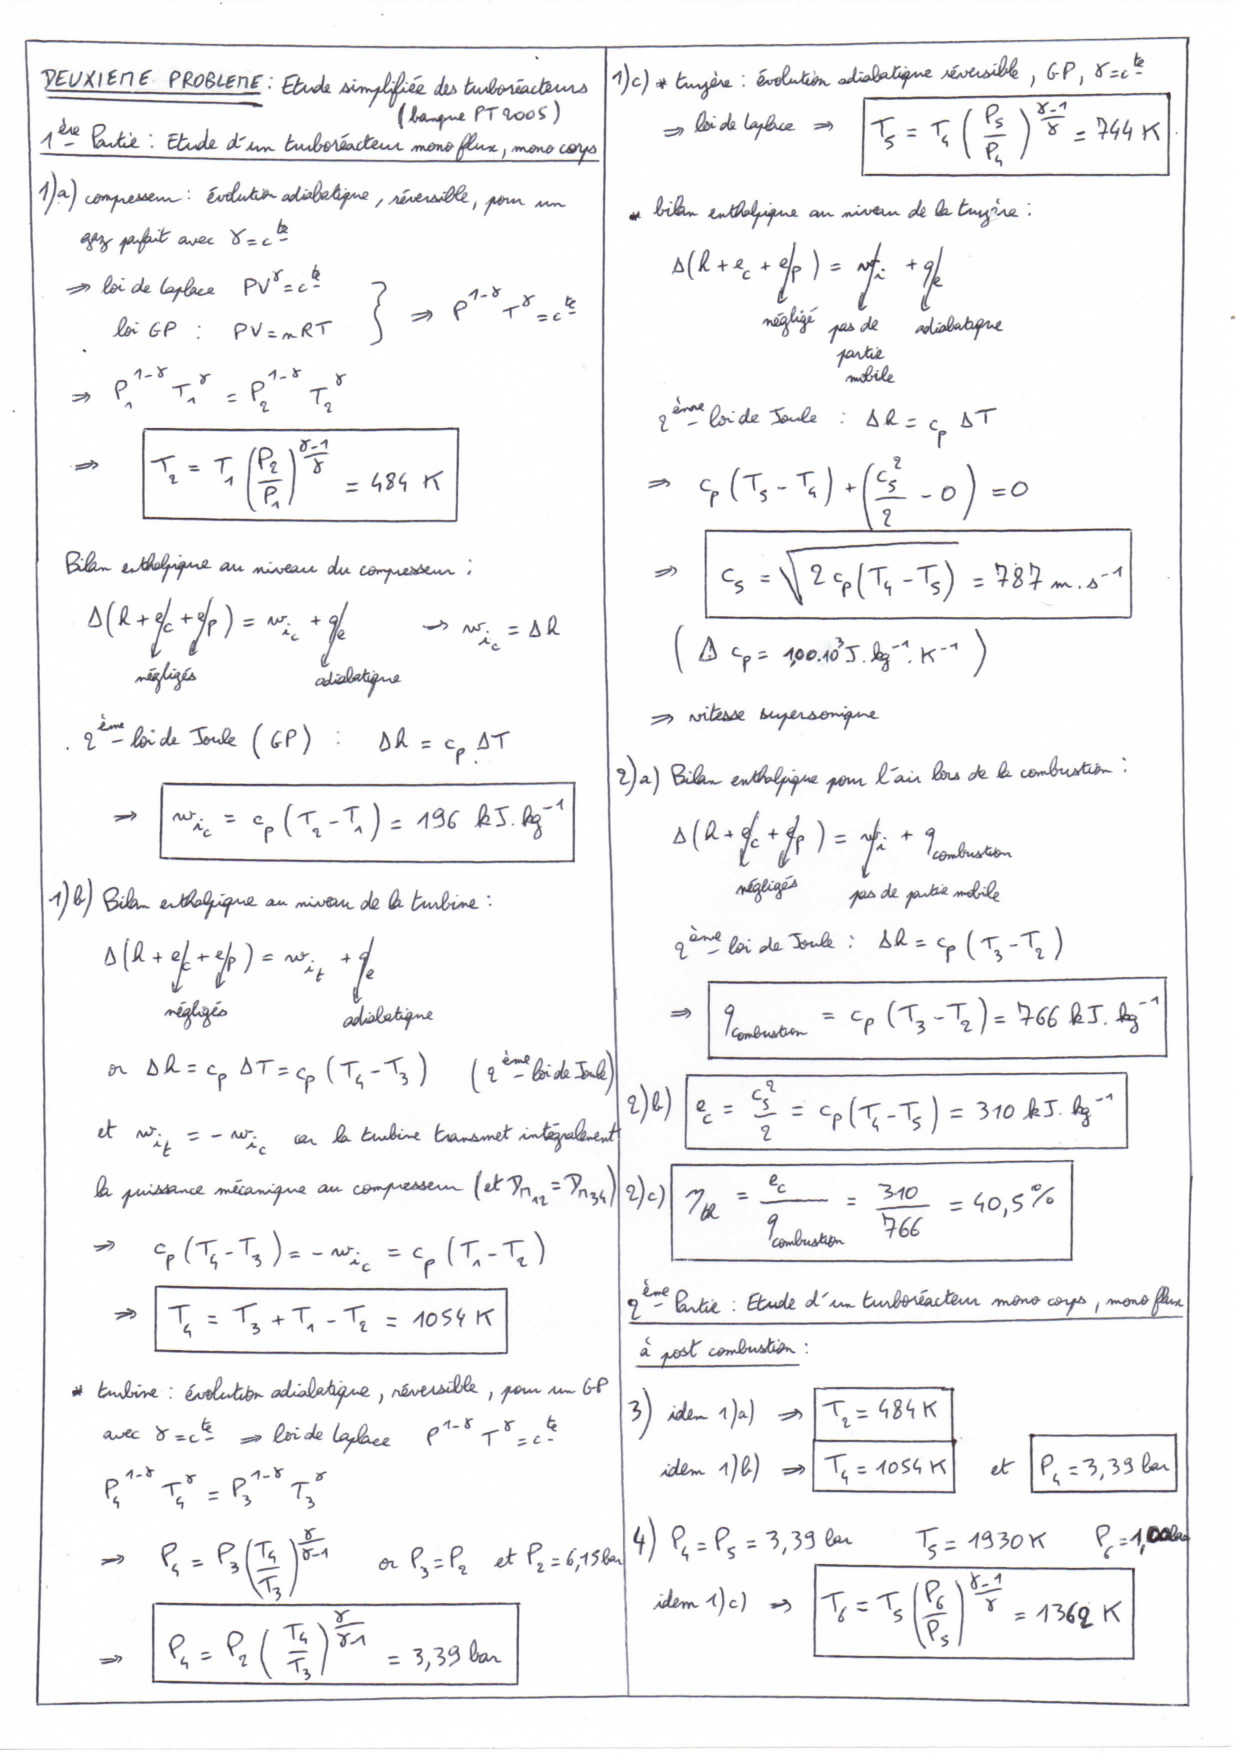 DEUXIEME PROBLEME : Etude simplifiée des turboréacteurs
(banque PT 2005)
1ère Partie : Etude d'un turboréacteur mono flux, mono corps
1)a) compresseur : évolution adiabatique, réversible, pour un
gaz parfait avec γ = cte
⇒ loi de Laplace PV^γ = cte
loi GP : PV = nRT } ⇒ P^(1-γ) T^γ = cte
⇒ P₁^(1-γ) T₁^γ = P₂^(1-γ) T₂^γ
⇒ T₂ = T₁ (P₂/P₁)^((γ-1)/γ) = 484 K
Bilan enthalpique au niveau du compresseur :
Δ(h + e_c + e_p) = w_ic + q_e → w_ic = Δh
négligés adiabatique
. 2ème loi de Joule (GP) : Δh = c_p ΔT
⇒ w_ic = c_p (T₂ - T₁) = 196 kJ.kg⁻¹
1)b) Bilan enthalpique au niveau de la turbine :
Δ(h + e_c + e_p) = w_it + q_e
négligés adiabatique
or Δh = c_p ΔT = c_p (T₄ - T₃) (2ème loi de Joule)
et w_it = - w_ic car la turbine transmet intégralement
la puissance mécanique au compresseur (et D_m12 = D_m34)
⇒ c_p (T₄ - T₃) = - w_ic = c_p (T₁ - T₂)
⇒ T₄ = T₃ + T₁ - T₂ = 1054 K
* turbine : évolution adiabatique, réversible, pour un GP
avec γ = cte ⇒ loi de Laplace P^(1-γ) T^γ = cte
P₄^(1-γ) T₄^γ = P₃^(1-γ) T₃^γ
⇒ P₄ = P₃ (T₄/T₃)^(γ/(γ-1)) or P₃ = P₂ et P₂ = 6,15 bar
⇒ P₄ = P₂ (T₄/T₃)^(γ/(γ-1)) = 3,39 bar
1)c) * tuyère : évolution adiabatique réversible, GP, γ = cte
⇒ loi de Laplace ⇒ T₅ = T₄ (P₅/P₄)^((γ-1)/γ) = 744 K
* bilan enthalpique au niveau de la tuyère :
Δ(h + e_c + e_p) = w_i + q_e
négligé pas de adiabatique
partie
mobile
2ème loi de Joule : Δh = c_p ΔT
⇒ c_p (T₅ - T₄) + (c₅²/2 - 0) = 0
⇒ c₅ = √(2 c_p (T₄ - T₅)) = 787 m.s⁻¹
(⚠ c_p = 1,00.10³ J.kg⁻¹.K⁻¹)
⇒ vitesse supersonique
2)a) Bilan enthalpique pour l'air lors de la combustion :
Δ(h + e_c + e_p) = w_i + q_combustion
négligés pas de partie mobile
2ème loi de Joule : Δh = c_p (T₃ - T₂)
⇒ q_combustion = c_p (T₃ - T₂) = 766 kJ.kg⁻¹
2)b) e_c = c₅²/2 = c_p (T₄ - T₅) = 310 kJ.kg⁻¹
2)c) η_th = e_c/q_combustion = 310/766 = 40,5 %
2ème Partie : Etude d'un turboréacteur mono corps, mono flux
à post combustion :
3) idem 1)a) ⇒ T₂ = 484 K
idem 1)b) ⇒ T₄ = 1054 K et P₄ = 3,39 bar
4) P₄ = P₅ = 3,39 bar T₅ = 1930 K P₆ = 1,00 bar
idem 1)c) ⇒ T₆ = T₅ (P₆/P₅)^((γ-1)/γ) = 1362 K